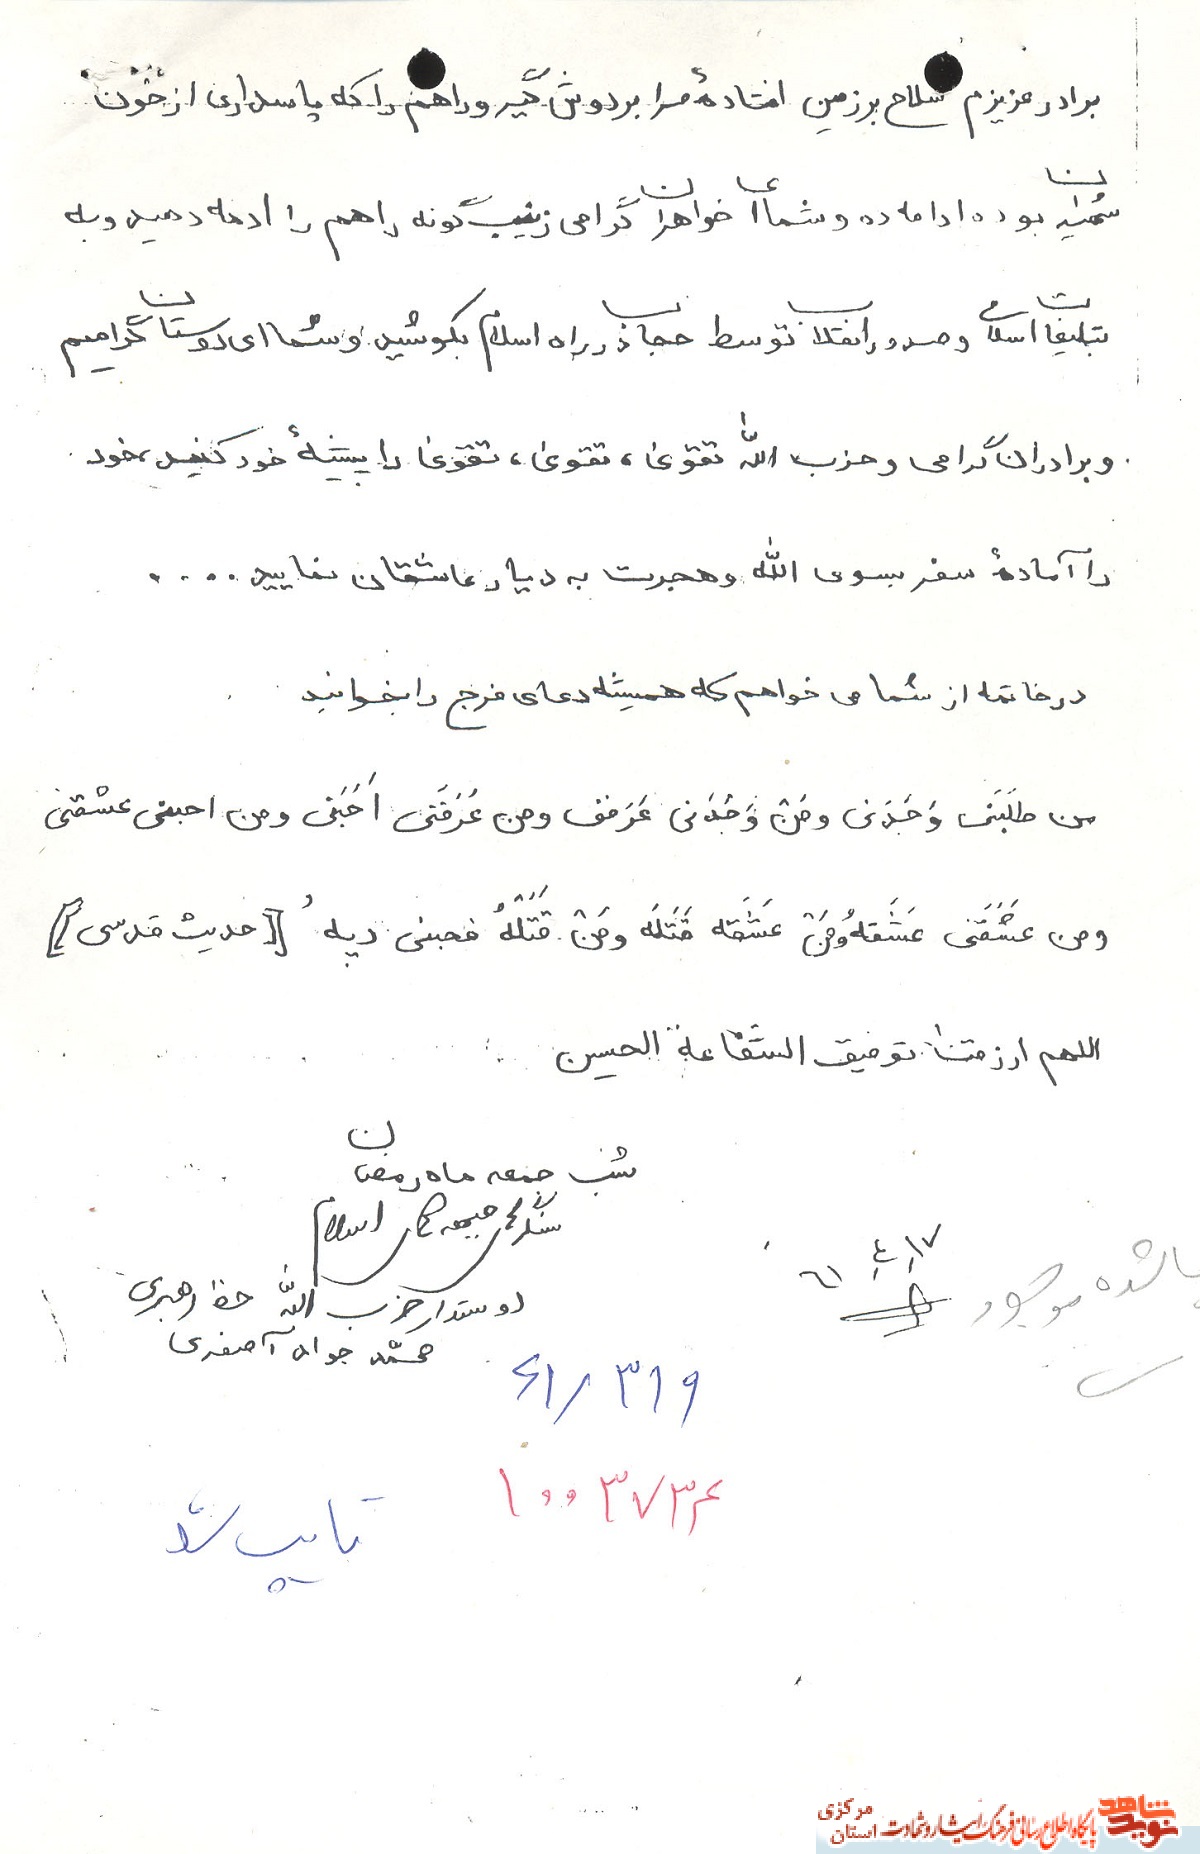 برادر عزیزم سلاح بر زمین افتادهٔ مرا بر دوش گیر و راهم را که پاسداری از خون
شهیدان بوده ادامه ده و شما ای خواهران گرامی زینب گونه راهم را ادمه دهید و به
تبلیغات اسلامی و صدور انقلاب توسط حجابتان در راه اسلام بکوشید و شما ای دوستان گرامیم
و برادران گرامی و حزب الله تقوی، تقوی، تقوی را پیشهٔ خود کنید، خود
را آمادهٔ سفر بسوی الله و هجرت به دیار عاشقان نمایید ....
در خاتمه از شما می خواهم که همیشه دعای فرج را بخوانید
من طَلَبَنی وَجَدَنی ومَنْ وَجَدَنی عَرَفَنی ومن عَرَفَنی اَحَبَنی ومن احبنی عشقنی
ومن عَشَقَنی عَشَقتهُ ومَنْ عَشَقته قَتَلته ومَنْ قَتَلْتَهُ فحبنی دیه [حدیث قدسی]
اللهم ارزقنا توفیق الشفاعة الحسین
شب جمعه ماه رمضان
سنگر جبهه های اسلام
دوستدار حزب الله خط رهبری
محمّد جواد آصفری
۶۱ ٫۴٫ ۱۷
۶۱/۳۱۹
۱۰۰۳۷۳۶
تایپ شد
نوید شاهد
پایگاه اطلاع رسانی فرهنگ ایثار و شهادت
استان مرکزی